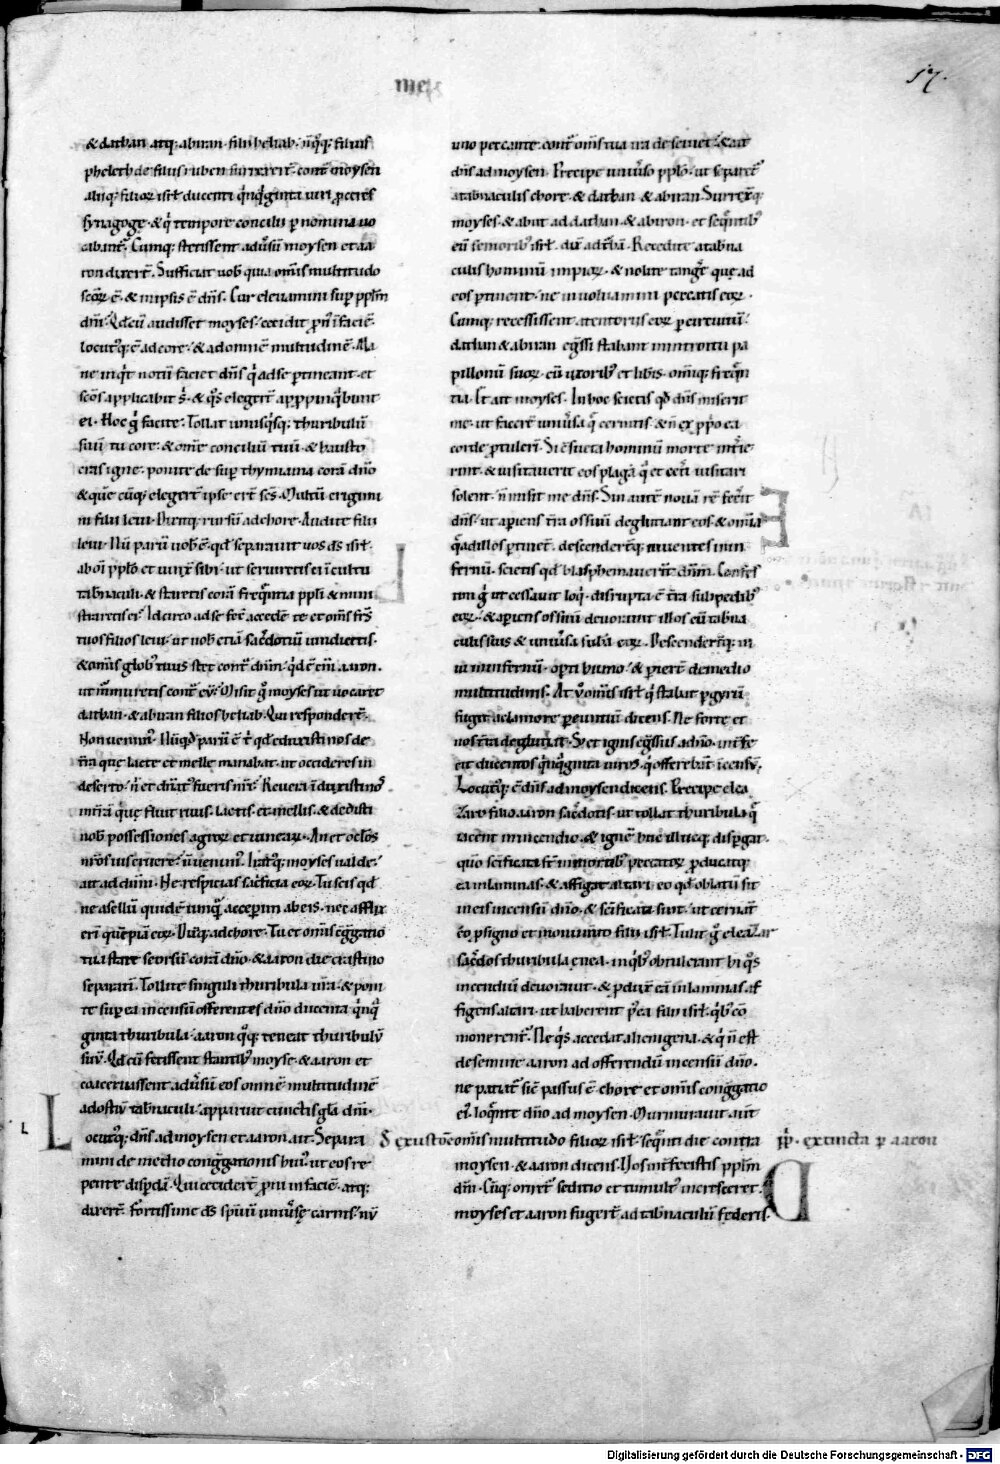 me
17.
& dathan atq; abiran filii heliab. n̄ q̊q; filius
pheleth de filiis ruben surrexert̄. cont̄ moysen
aliiq; filioꝝ isrl̄ ducenti qi̓nqi̓ginta uiri p̄ceres
synagoge. & qi̓ tempore concilii p nomina uo
cabant̄. Cumq; stetissent adu̓sū moysen et aa
ron dixert̄. Sufficiat uob̄ quia om̄is multitudo
scōꝝ ē. & in ipsis ē dn̄s. Cur eleuamini sup pplm̄
dn̄i. Qd̄ cū audisset moyses. cecidit p̄n̄ ī faciē.
locutq; ē ad core. & ad omnē multudinē. Ma
ne inqi̓t notū faciet dn̄s qi̓ ad se ptineant. et
scōs applicabit s̓. & qo̓s elegerit app̄pinqb̓unt
ei. Hoc g̓ facite. Tollat unusqi̓sq; thuribulū
suū tu core. & om̄e conciliū tuū. & hausto
cras igne. ponite de sup thymiama corā dn̄o
& quē cūq; elegerit ipse erit scs̄. Multū erigimi
ni filii leui. Dixitq; rursū ad chore. Audite filii
leui. Nū parū uob̄ ē. qd̄ separauit uos ds̄ isrl̄.
ab oi̅ pplo̅ et uinx̄ sibi. ut seruiretis ei ī cultu
tab̄naculi. & staretis corā freq̄ntia ppli & mini
straretis ei. Idcirco ad se fec̄ accedē te et om̄s frs̄
tuos filios leui. ut nob̄ etiā sac̄dotiū uindicetis.
& om̄is glob̓ tuus stet cont̄ dn̄m. qi̓d ē eni̅ aaron.
ut m̄muretis cont̄ eū. Misit g̓ moyses ut uocaret
dathan. & abiran filios heliab. Qui respondert̄.
Non uenim̓. Nūqd̄ parū ē t̓ qd̄ eduxisti nos de
tr̄a que lacte et melle manabat. ut occideres in
deserto. n̄ et dn̄at̓ fueris nr̄i. Reuera īduxisti nos
in tr̄ā que fluit riuis. lactis. et mellis. & dedisti
nob̄ possessiones agroꝝ et uineaꝝ. An et oclos
nr̄os uis eruere. n̄ uenim̓. Iratq; moyses ualde.
ait ad dn̄m. Ne respicias sac̄ficia eoꝝ. Tu scis qd̄
ne asellū quidē unq̄ acceperim ab eis. nec afflix
erī quēpiā eoꝝ. Dixitq; ad chore. Tu et om̄is cg̅gatio
tua state seorsū corā dn̄o. & aaron die crastino
separati. Tollite singuli thuribula ur̄a. & poni
te sup ea incensū offerentes dn̄o ducenta qi̓nqi̓
ginta thuribula. aaron q̊q; teneat thuribulū
suū. Qd̄ cū fecissent stantib̓ moyse. & aaron et
coaceruassent adu̓sū eos omnē multitudinē
ad ostiū tab̄naculi. apparuit cunctis gla̅ dn̄i.
Locutq; dn̄s ad moysen et aaron ait. Separa
mini de medio cong̅gationis hui̓. ut eos re
pente disp̄dā. Qui ceciderē proni in faciē. atq;
dixert̄. fortissime ds̄ spūū uniu̓se carnis. nū
L
uno peccante. cont̄ om̄s tua ira deseuiet. & ait
dn̄s ad moysen. Precipe uniu̓so pplo̅. ut separet̄
a tabnaculis chore. & dathan & abiran. Surrexitq;
moyses. & abiit ad dathan & abiron. et seq̄ntib̓
eū seniorib̓ isrl̄. dix̄ ad trb̄ā. Recedite a tabna
culis hominū impioꝝ. & nolite tang̓e que ad
eos ptinent. ne inuoluamini peccatis eoꝝ.
Cumq; recessissent a tentoriis eoꝝ p circuitū.
dathan & abiran eg̅ssi stabant in introitu pa
pillionū suoꝝ. cū uxorib̓ et libis. om̄iq; freq̄n
tia. Et ait moyses. In hoc scietis qd̄ dn̄s miserit
me. ut facerē uniu̓sa q̄ cernitis. & n̄ ex pp̓o ea
corde ptulerī. Si csueta hominū morte int̓ie
rint. & uisitauerit eos plaga. q̄ et cet̓i uisitari
solent. n̄ misit me dn̄s. Sin autē nouā rē fec̓it
dn̄s. ut aperiens tr̄a os suū deglutiant eos & om̄ia
q̄ ad illos ptinet. descenderītq; uiuentes in in
fernū. scietis qd̄ blasphemauerit dn̄m. Confes
tim g̓ ut cessauit loqi̓. disrupta ē tr̄a sub pedib̓
eoꝝ. & aperiens os suū deuorauit illos cū tabna
culis suis & uniu̓sa subā eoꝝ. Descenderītq; ui
ui in infernū. opti humo. & pierē de medio
multitudinis. At uo̓ om̄is isrl̄ qi̓ stabat p gyrū
fugit a clamore pereuntiū dicens. Ne forte et
nos tr̄a deglutiat. Sz et ignis eg̅ssus a dn̄o. int̓fe
cit ducentos qi̓nqi̓ginta uiros. qi̓ offerebāt īcensū.
Locutq; ē dn̄s ad moysen dicens. Precipe elea
zaro filio aaron sac̄dotis. ut tollat thuribula q̄
iacent in incendio. & ignē huc illucq; disp̄gat.
quo scīficata st̄ in mortib̓ peccatoꝝ. p̄ducatq;
ea in laminas. & affigat altari. eo qd̄ oblatū sit
in eis incensū dn̄o. & scīficata sint. ut cernāt
ea p̄ signo et monimto filii isrl̄. Tulit g̓ eleazar
sac̄dos thuribula ęnea. in qb̓ obtulerant hi qo̓s
incendiū deuorauit. & p̄dux̄ ea in laminas. af
figens altari. ut haberent p̓ ea filii isrl̄. qb̓ cō
monerent̄. Ne qi̓s accedat alienigena. & qi̓ n̄ est
de semine aaron ad offerendū incensū dn̄o.
ne patiat̄ sic̄ passus ē chore et om̄is cong̅gatio
ei̓. loq̄nte dn̄o ad moysen. Murmurauit aut̄
δ exustōe om̄is multitudo filioꝝ isrl̄. seq̄nti die contra pp̄i. extincta p aaron
moysen. & aaron dicens. Uos int̓fecistis pplm̄
dn̄i. Cūq; oriret̄ seditio et tumult̓ incresceret.
moyses et aaron fugert̄ ad tab̄naculū federis.
Digitalisierung gefördert durch die Deutsche Forschungsgemeinschaft - DFG